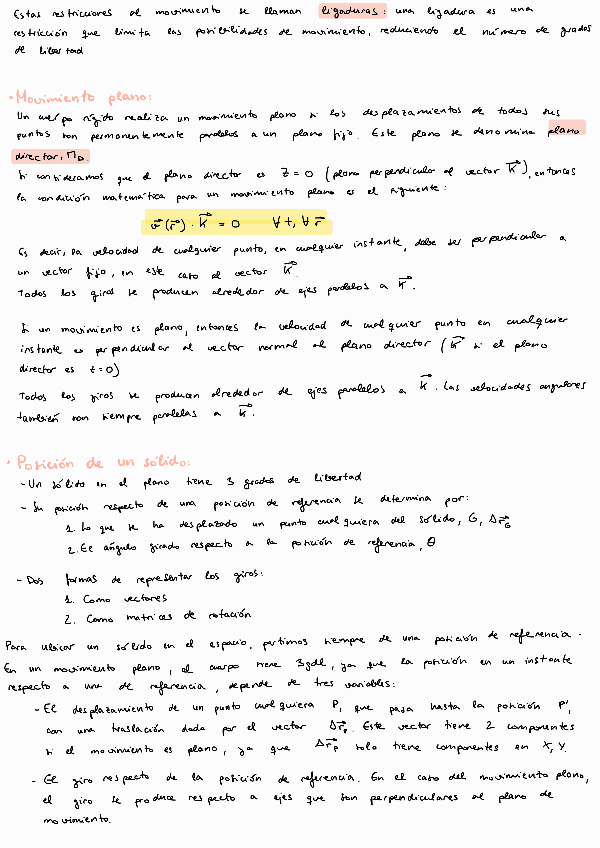 Estas restricciones al movimiento se llaman ligaduras: una ligadura es una
restricción que limita las posibilidades de movimiento, reduciendo el número de grados
de libertad
• Movimiento plano:
Un cuerpo rígido realiza un movimiento plano si los desplazamientos de todos sus
puntos son permanentemente paralelos a un plano fijo. Este plano se denomina plano
director, Π_D.
Si consideramos que el plano director es z = 0 (plano perpendicular al vector k⃗), entonces
la condición matemática para un movimiento plano es el siguiente:
v⃗(r⃗) · k⃗ = 0 ∀t, ∀r⃗
Es decir, la velocidad de cualquier punto, en cualquier instante, debe ser perpendicular a
un vector fijo, en este caso al vector k⃗.
Todos los giros se producen alrededor de ejes paralelos a k⃗.
Si un movimiento es plano, entonces la velocidad de cualquier punto en cualquier
instante es perpendicular al vector normal al plano director (k⃗ si el plano
director es z=0)
Todos los giros se producen alrededor de ejes paralelos a k⃗. Las velocidades angulares
también son siempre paralelas a k⃗.
• Posición de un sólido:
- Un sólido en el plano tiene 3 grados de libertad
- Su posición respecto de una posición de referencia se determina por:
1. Lo que se ha desplazado un punto cualquiera del sólido, G, Δr⃗_G
2. El ángulo girado respecto a la posición de referencia, θ
- Dos formas de representar los giros:
1. Como vectores
2. Como matrices de rotación
Para ubicar un sólido en el espacio, partimos siempre de una posición de referencia.
En un movimiento plano, el cuerpo tiene 3gdl, ya que la posición en un instante
respecto a una de referencia, depende de tres variables:
- El desplazamiento de un punto cualquiera P, que pasa hasta la posición P',
con una traslación dada por el vector Δr⃗_P. Este vector tiene 2 componentes
si el movimiento es plano, ya que Δr⃗_P solo tiene componentes en X, Y.
- El giro respecto de la posición de referencia. En el caso del movimiento plano,
el giro se produce respecto a ejes que son perpendiculares al plano de
movimiento.